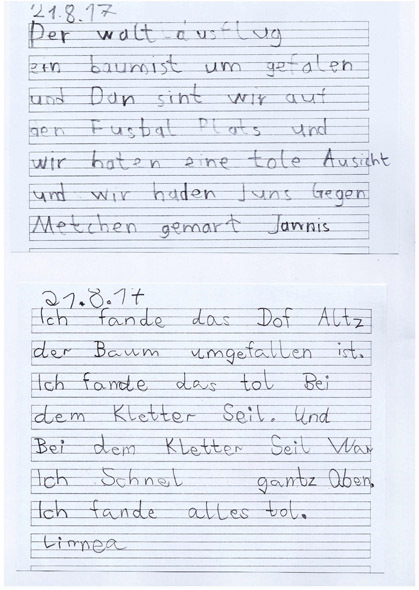 21.8.17
Der walt ausflug
ein baumist um gefalen
und Dan sint wir auf
den Fusbal Plats und
wir haten eine tole Ausicht
und wir haden Juns Gegen
Metchen gemart Jannis
21.8.17
Ich fande das Dof Altz
der Baum umgefallen ist.
Ich fande das tol Bei
dem Kletter Seil. Und
Bei dem Kletter Seil War
Ich Schnel gantz Oben.
Ich fande alles tol.
Linnea